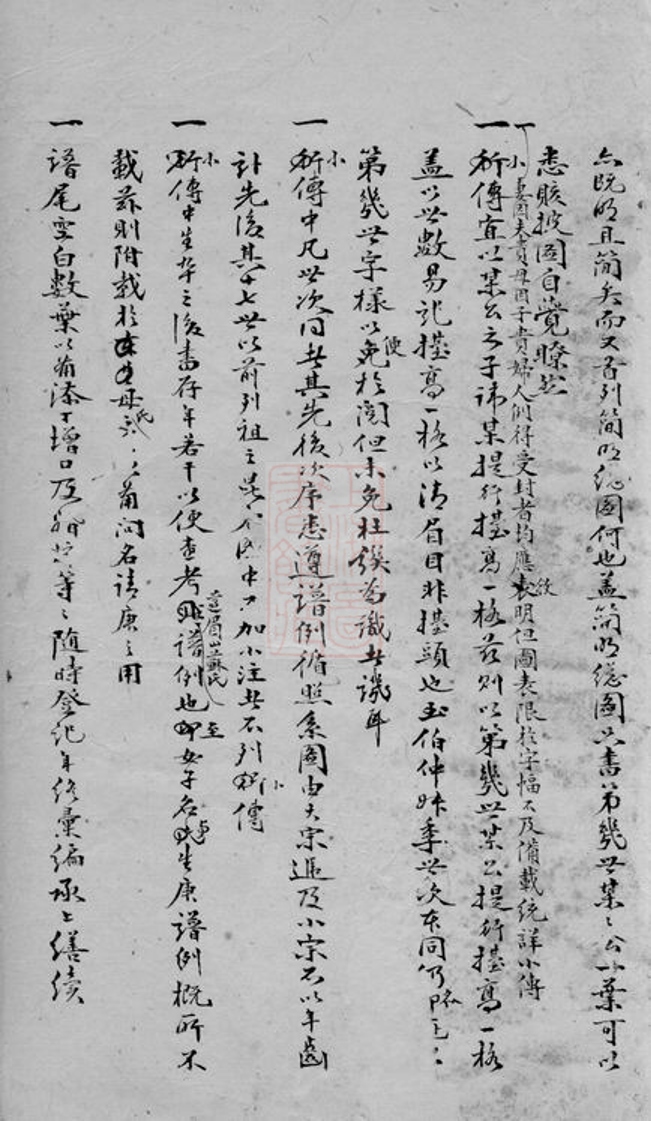 亦既明且簡矣而又首列簡明總圖何也蓋簡明總圖只書第幾世某某公一葉可以
悉賅披圖自覺瞭然
一小妻因夫貴母因子貴婦人們得受封者均應敘明但圖表限於字幅不及備載統詳小傳
一 傳直以某公之子諱某提行擡高一格茲則以第幾世某公提行擡高一格
蓋以世數易記擡高一格以清眉目非擡頭也至伯仲叔季世次本同仍
第幾世字樣以便於閱但未免杜撰為識者譏耳
一 小傳中凡世次同者其先後次序悉遵譜例循照系圖由大宗遞及小宗不以年齒
計先後其十七世以前列祖之 圖中只加小注者不列小傳
一 小傳中生卒之後書存年若干以便查考遵眉山蘇氏譜例也至女子名 生庚譜例概所不
載茲則附載於 母氏 備問名請庚之用
一 譜尾空白數葉以備添丁增口及 等等隨時登記年終彙編承上繕續